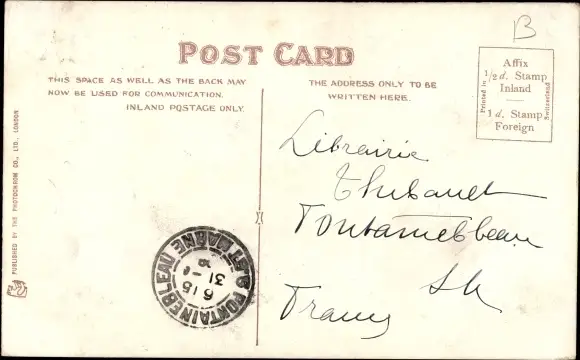 B
POST CARD
THIS SPACE AS WELL AS THE BACK MAY
NOW BE USED FOR COMMUNICATION.
INLAND POSTAGE ONLY.
THE ADDRESS ONLY TO BE
WRITTEN HERE.
Affix
1/2 d. Stamp
Inland
1 d. Stamp
Foreign
Printed in
Switzerland
PUBLISHED BY THE PHOTOCHROM CO., LTD., LONDON
Librairie
Thibault
Fontainebleau
Frany
FONTAINEBLEAU
S.ET MARNE
6 15
31 - 1